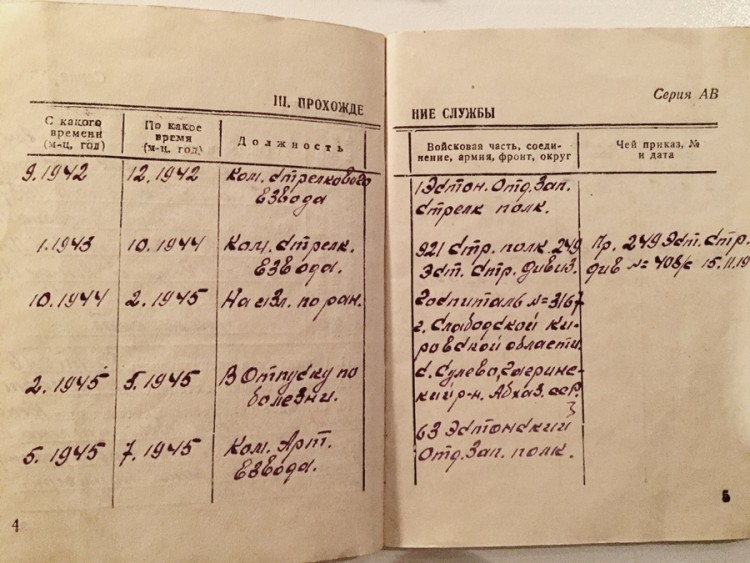 III. ПРОХОЖДЕ
С какого
времени
(м-ц, год)
По какое
время
(м-ц, год)
Должность
9.1942
12.1942
Ком. стрелкового
взвода
1.1943
10.1944
Ком. стрелк.
взвода.
10.1944
2.1945
На изл. по ран.
2.1945
5.1945
В Отпуску по
болезни.
5.1945
7.1945
Ком. Арт.
взвода.
4
Серия АВ
НИЕ СЛУЖБЫ
Войсковая часть, соеди-
нение, армия, фронт, округ
Чей приказ, №
и дата
1 Эстон. Отд. Зап.
стрелк полк.
921 стр. полк. 249
Эст. стр. дивиз.
Пр. 249 Эст. стр.
див № 408/с 15.11.19
Госпиталь № 3167
г. Слабодской Ки-
ровской области.
с. Сулево, Гагринс-
кий р-н. Абхаз. ССР.
63 Эстонский
Отд. Зап. полк.
5